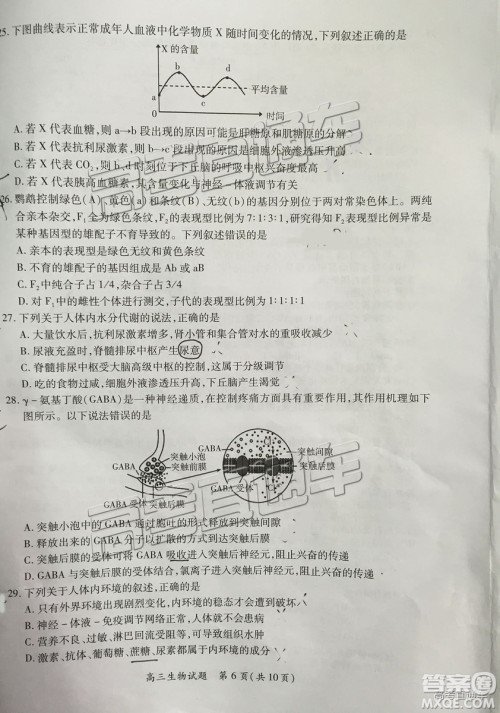 25. 下图曲线表示正常成年人血液中化学物质 X 随时间变化的情况,下列叙述正确的是
X 的含量
b
d
平均含量
a
c
时间
A. 若 X 代表血糖,则 a→b 段出现的原因可能是肝糖原和肌糖原的分解
B. 若 X 代表抗利尿激素,则 b→c 段出现的原因是细胞外液渗透压升高
C. 若 X 代表 CO₂,则 b、d 时刻位于下丘脑的呼吸中枢兴奋度最高
D. 若 X 代表胰高血糖素,其含量变化与神经一体液调节有关
26. 鹦鹉控制绿色(A)、黄色(a)和条纹(B)、无纹(b)的基因分别位于两对染色体上。两纯
合亲本杂交,F₁全为绿色条纹,F₂的表现型比例为 7∶1∶3∶1,研究得知 F₂表现型比例异常是
某种基因型的雄配子不育导致的。下列叙述错误的是
A. 亲本的表现型是绿色无纹和黄色条纹
B. 不育的雄配子的基因组成是 Ab 或 aB
C. F₂中纯合子占 1/4,杂合子占 3/4
D. F₂中的雌性个体进行测交,子代的表现型比例为 1∶1∶1∶1
27. 下列关于人体内水分代谢的说法,正确的是
A. 大量饮水后,抗利尿激素增多,肾小管和集合管对水的重吸收减少
B. 尿液充盈时,脊髓排尿中枢产生尿意
C. 脊髓排尿中枢受大脑高级中枢的控制,这属于分级调节
D. 吃的食物过咸,细胞外液渗透压升高,下丘脑产生渴觉
28. γ-氨基丁酸(GABA)是一种神经递质,在控制疼痛方面具有重要作用,其作用机理如下
图所示。以下说法错误的是
GABA
突触小泡
突触前膜
GABA 受体
突触后膜
GABA
突触间隙
突触后膜
GABA 受体
A. 突触小泡中的 GABA 通过胞吐的形式释放到突触间隙
B. 释放出来的 GABA 分子以扩散的方式到达突触后膜
C. 突触后膜的 GABA 受体将 GABA 吸收进后神经元,阻止兴奋的传递
D. GABA 与突触后膜的受体结合,氯离子可能进入后神经元,阻止兴奋的传递
29. 下列关于人体内环境的叙述,正确的是
A. 只有外界环境出现剧烈变化,内环境的稳态才会遭到破坏
B. 神经-体液-免疫调节网络是内环境维持稳态的主要调节机制
C. 营养不良、过敏、淋巴回流受阻等均会导致组织水肿
D. 激素、抗体、葡萄糖、蔗糖、二氧化碳都属于内环境的成分
高三生物试题 第 6 页(共 10 页)
高考直通车